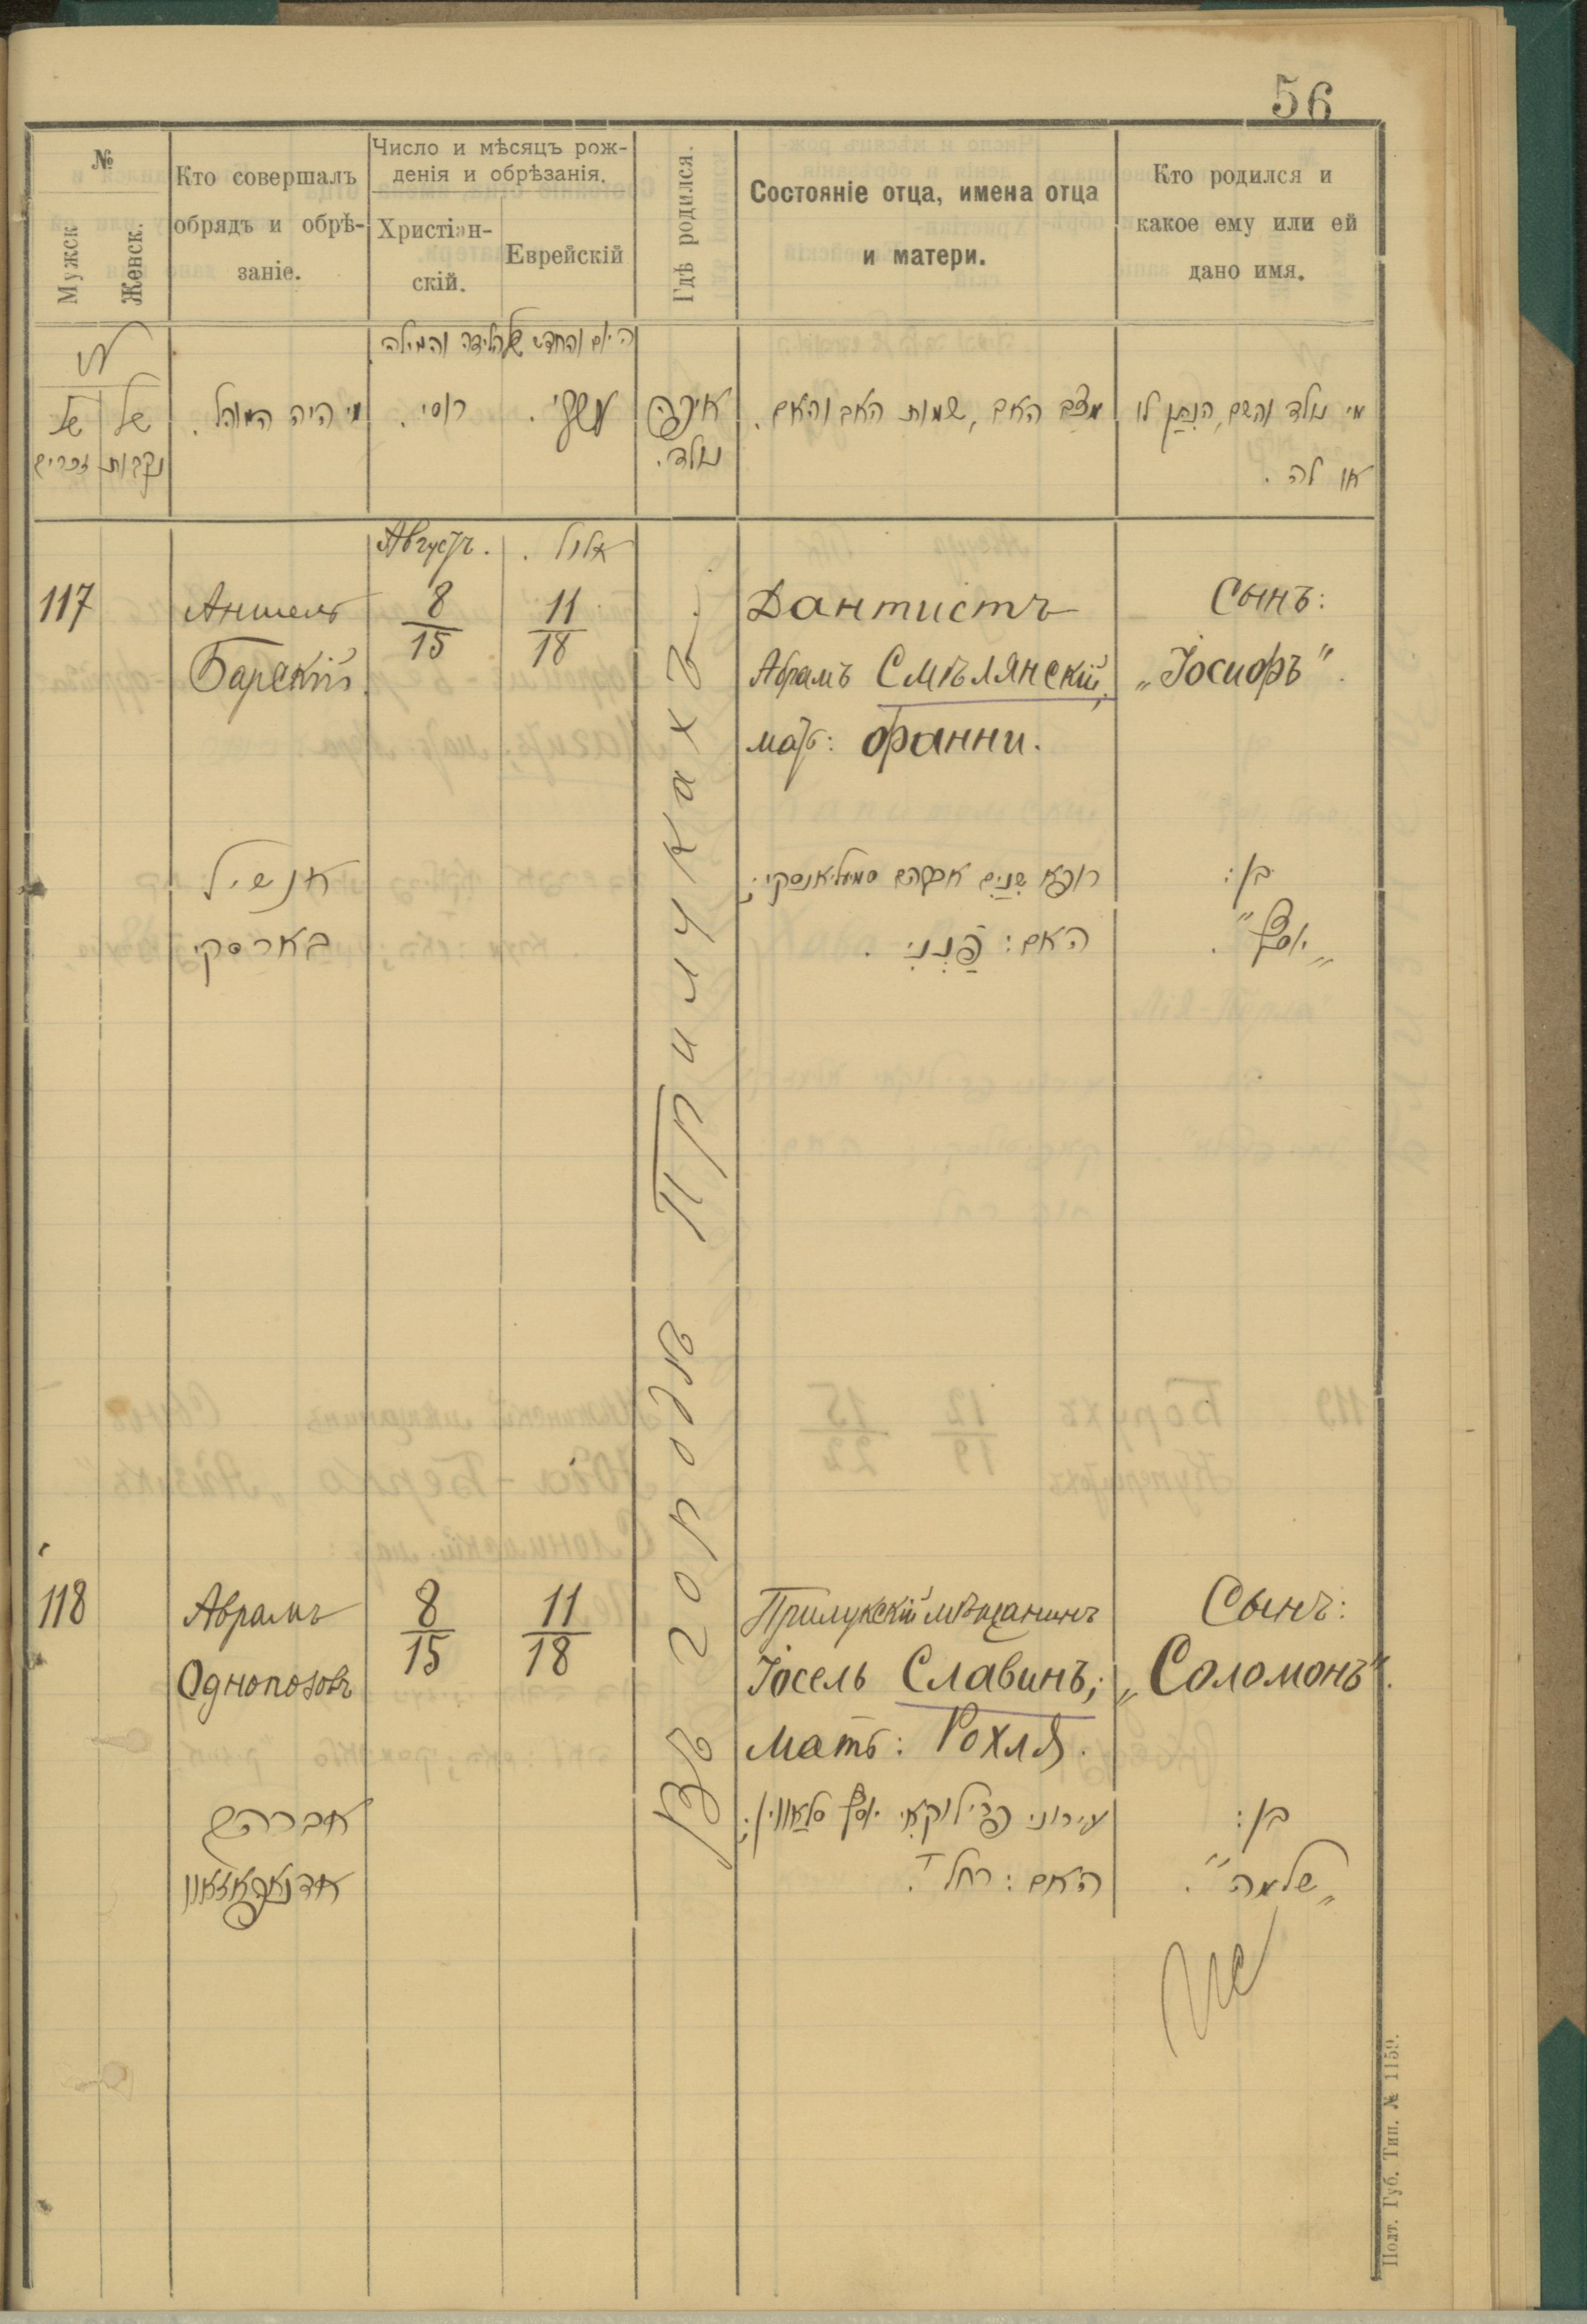 56
№
Мужск
Женск.
Кто совершалъ
обрядъ и обрѣ-
заніе.
Число и мѣсяцъ рож-
денія и обрѣзанія.
Христіан-
скій.
Еврейскій
Гдѣ родился.
Состояніе отца, имена отца
и матери.
Кто родился и
какое ему или ей
дано имя.
היום והחדש של הלידה והמילה
של
זכרים
של
נקבות
מי היה המוהל.
רוסי.
איפה
נולד.
מצב האב, שמות האב והאם.
מי נולד והשם, הנתן לו
או לה.
Августъ.
אלול.
117
Аншель
Барскій
8
15
11
18
Дантистъ
Абрамъ Смѣлянскій,
мать: Фанни.
Сынъ:
„Іосифъ".
אנשיל
בארסקי
רופא שנים אברהם סמעליאנסקי;
האם: פֿנני.
בן:
„יוסף".
Въ городѣ Прилукахъ.
118
Абрамъ
Однопозовъ
8
15
11
18
Прилукскій мѣщанинъ
Іосель Славинъ;
мать: Рохля.
Сынъ:
„Соломонъ".
אברהם
אדנאפאזאוו
עירוני פרילוקאי יוסף סלאווין;
האם: רחל.
בן:
„שלמה".
Полт. Губ. Тип. № 1159.